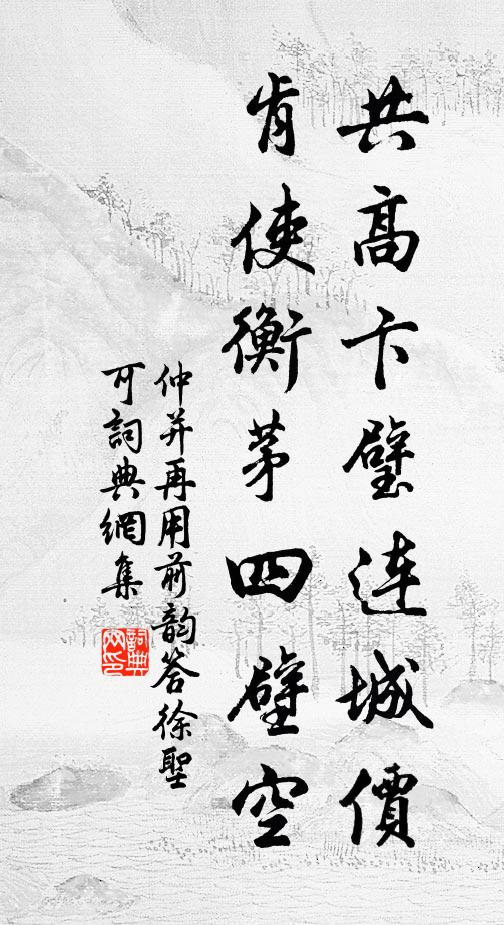 共高卞璧連城價
肯使衡茅四壁空
仲并再用前韵答徐聖
可詞典網集
詞典網印